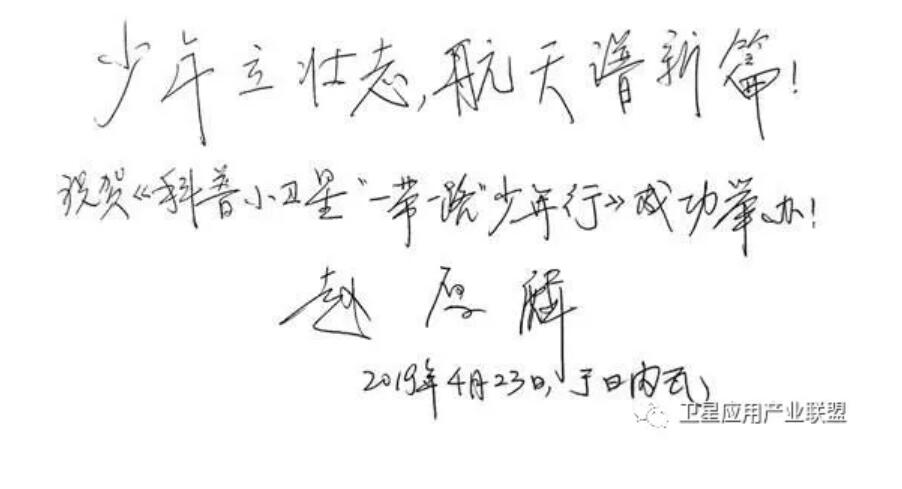 少年立壮志,航天谱新篇!
祝贺《科普小卫星“一带一路”少年行》成功举办!
赵厚麟
2019年4月23日,于日内瓦
卫星应用产业联盟